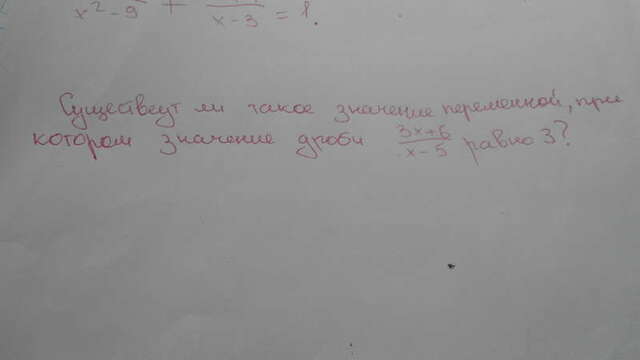 x²-9 + x-3 = 1.
Существует ли такое значение переменной, при
котором значение дроби 3x+6/x-5 равно 3?